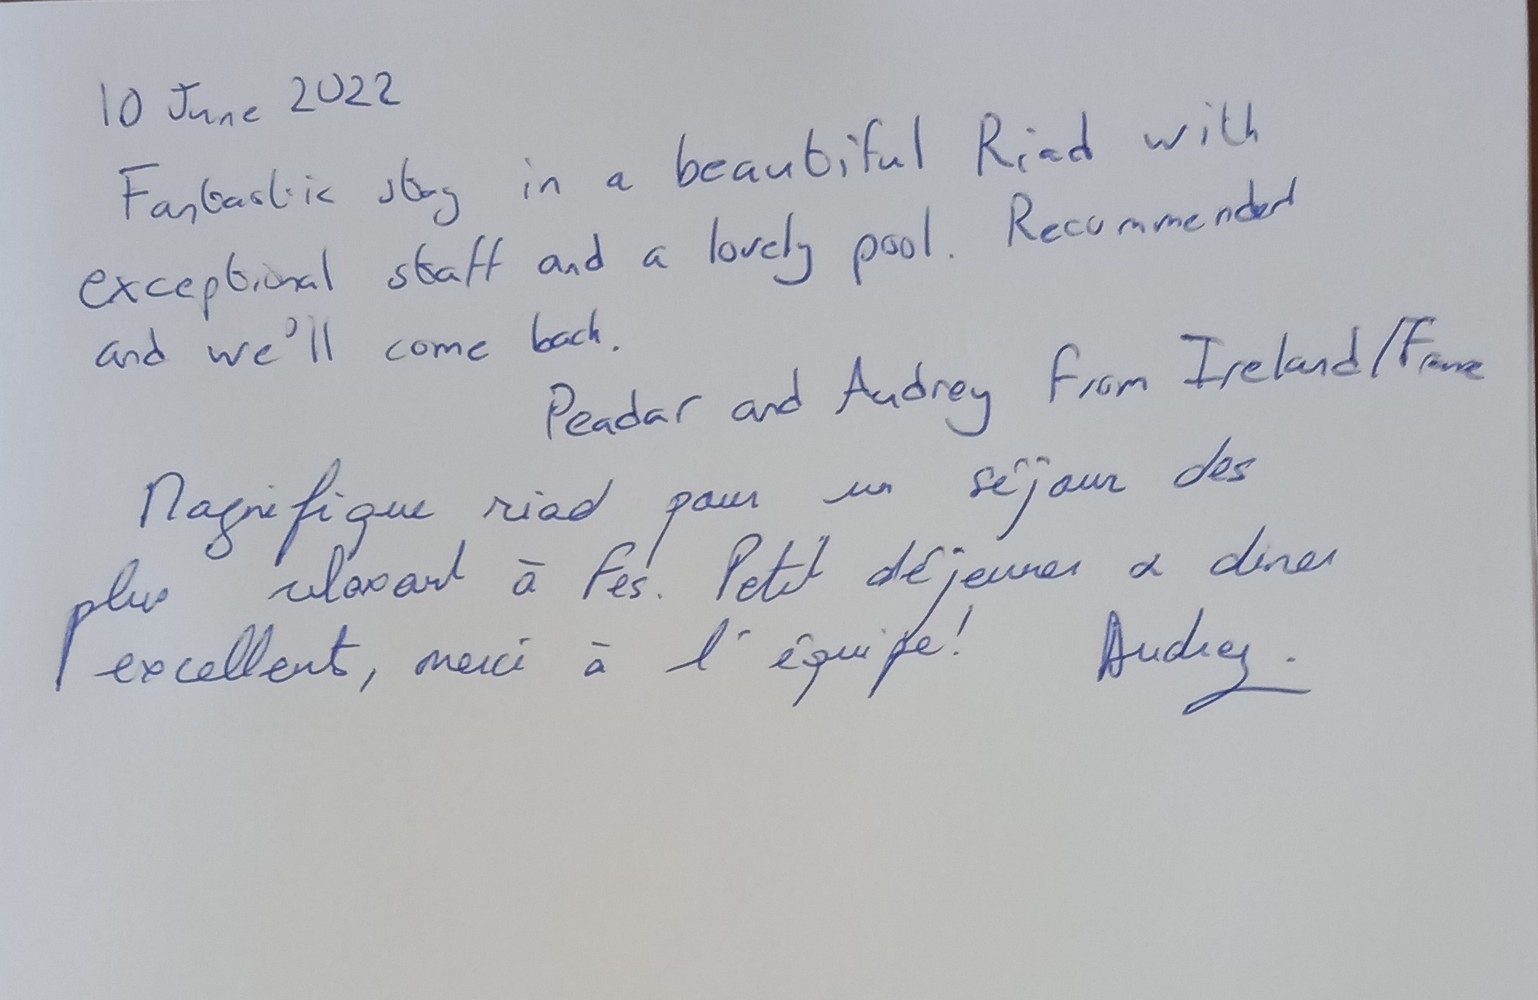 10 June 2022
Fantastic stay in a beautiful Riad with
exceptional staff and a lovely pool. Recommended
and we'll come back.
Peadar and Audrey from Ireland/France
Magnifique riad pour un séjour des
plus relaxant à Fès. Petit déjeuner & diner
excellent, merci à l'équipe! Audrey.